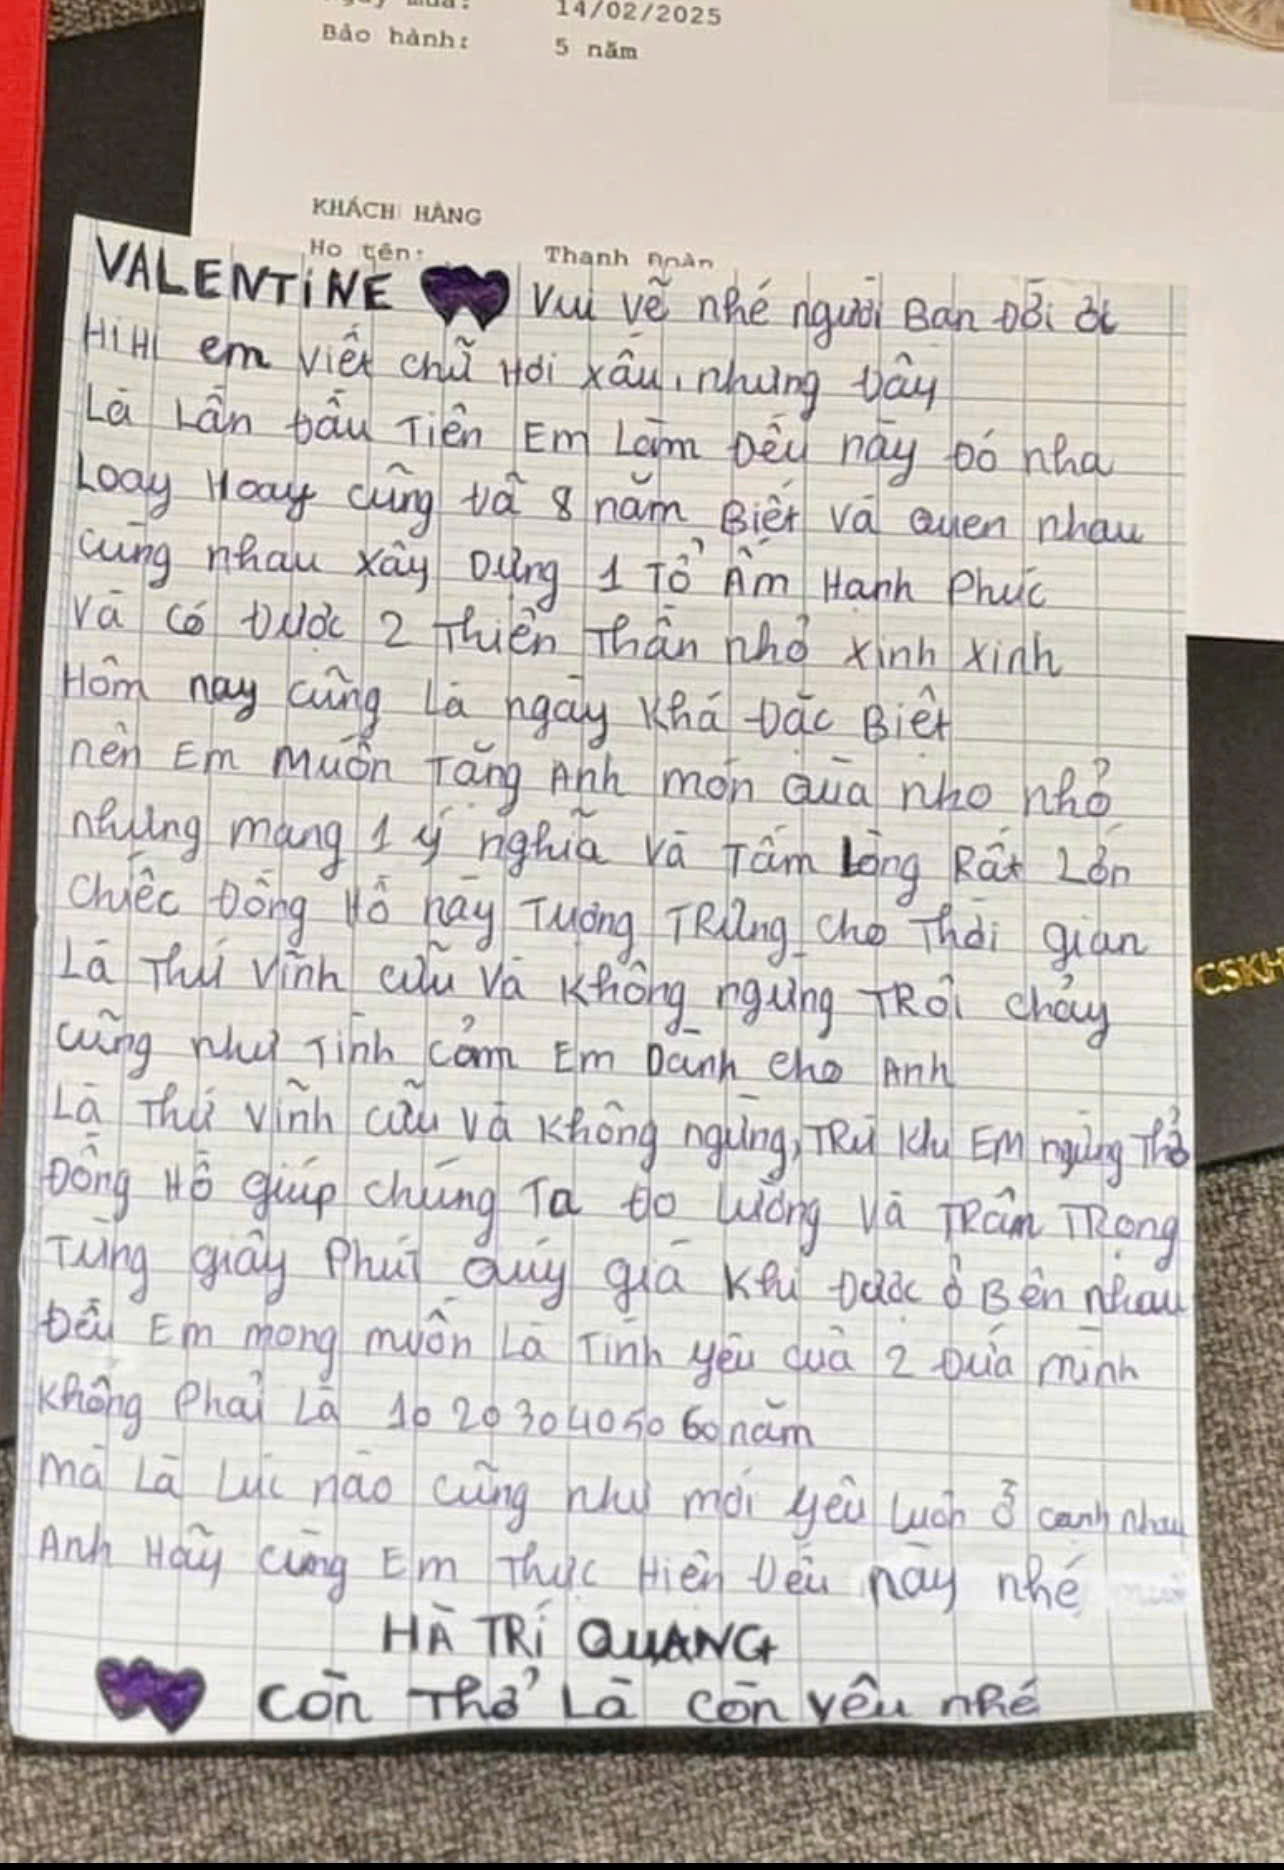 14/02/2025
Bảo hành: 5 năm
KHÁCH HÀNG
Họ tên: Thanh
VALENTINE Vui vẽ nhé người Bạn Đời ời
HiHi em viết chữ Hơi xấu, nhưng đây
Là Lần đầu Tiên Em Làm Đều này Đó nha
Loay Hoay cũng đã 8 năm Biết và Quen nhau
cùng nhau xây Dựng 1 Tổ Ấm Hạnh Phúc
Và có Được 2 Thiên Thần nhỏ xinh xinh
Hôm nay cũng Là ngày Khá Đặc Biệt
nên Em Muốn Tặng Anh món Quà nho nhỏ
nhưng mang 1 ý nghĩa và Tấm Lòng Rất Lớn
chiếc Đồng Hồ này Tượng TRưng cho Thời gian
Là Thứ vĩnh cữu Và Không ngừng TRôi chảy
cũng như Tình cảm Em Dành cho Anh
Là Thứ Vĩnh cữu và Không ngừng, TRừ Khi EM ngừng Thở
Đồng Hồ giúp chúng Ta đo Lường Và TRân TRọng
Từng giây Phút Quý giá Khi Được ở Bên nhau
Đều Em mong muốn Là Tình yêu của 2 Đứa mình
Không Phải Là 10 20 30 40 50 60 năm
mà Là Lúc nào cũng như mới yêu Luôn ở cạnh nhau
Anh Hãy cùng Em Thực Hiện Đều này nhé
HÀ TRÍ QUANG
còn Thở Là còn yêu nhé
CSKH